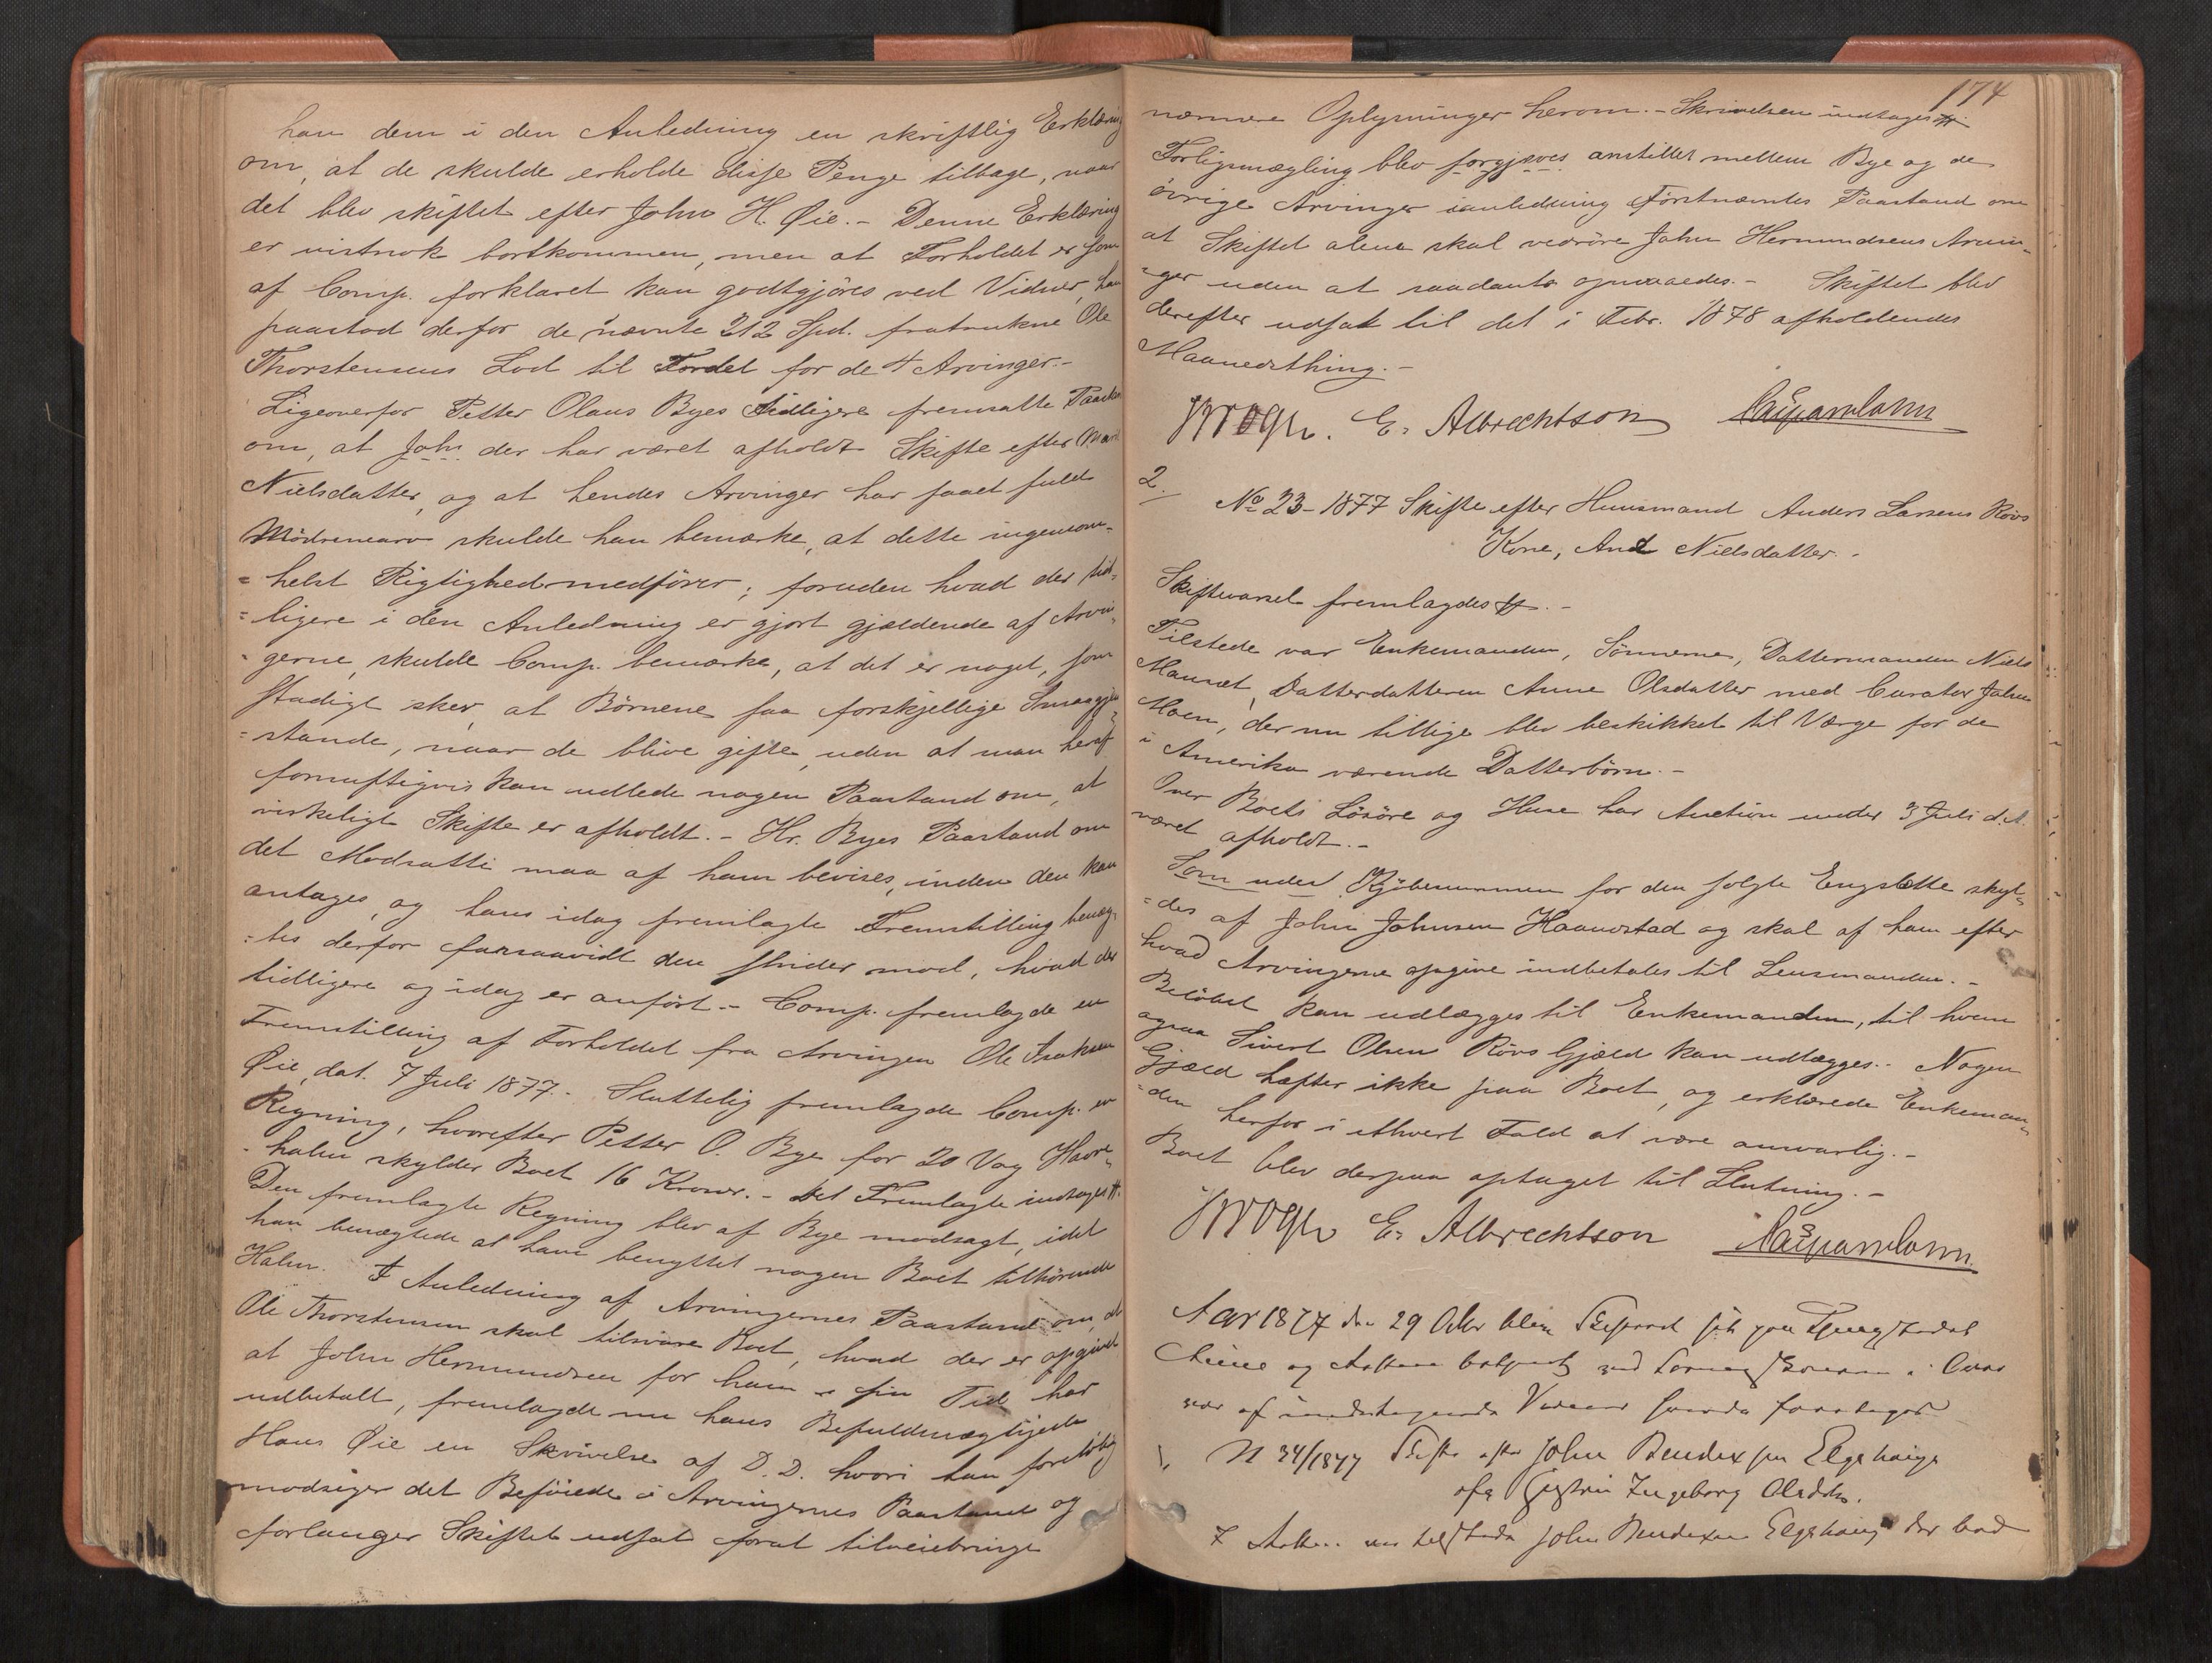 han dem i den Anledning en skriftlig Erklæring
om, at de skulde erholde disse Penge tilbage, naar
det blev skiftet efter John H. Øie.- Denne Erklæring
er vistnok bortkommen, men at Forholdet er som
af Comp. forklaret kan godtgjöres ved Vidner, han
paastod derfor de nævnte 212 Spd. fratrukne Ole
Thorstensens Lod til Fordel for de 4 Arvinger.-
Ligeoverfor Petter Olaus Byes tidligere fremsatte Paastand
om, at John der har været afholdt Skifte efter Marit
Nielsdatter, og at hendes Arvinger har faaet fuld
Mödrenearv skulde han bemærke, at dette ingensom-
=helst Rigtighed medförer; foruden hvad der tid-
=ligere i den Anledning er gjort gjældende af Arvin-
-gerne, skulde Comp. bemærke, at det er noget, som
stadigt sker, at Börnene faa forskjellige Smaagjen-
=stande, naar de blive gifte, uden at man heraf
fornuftigvis kan udlede nogen Paastand om, at
virkeligt Skifte er afholdt.- Hr. Byes Paastand om
det Modsatte maa af ham bevises, inden den kan
antages, og hans idag fremlagte Fremstilling benæg-
=tes derfor forsaavidt den strider mod, hvad der
tidligere og idag er anfört.- Comp. fremlagde en
Fremstilling af Forholdet fra Arvingen Ole Isaksen
Øie, dat. 7 Juli 1877.- Sluttelig fremlagde Comp. en
Regning, hvorefter Petter O. Bye for 20 Vog Havre-
-halm skylder Boet 16 Kroner.- Det Fremlagte indtages #.
Den fremlagte Regning blev af Bye modsagt, idet
han benægtede at have benyttet nogen Boet tilhörende
Halm. I Anledning af Arvingernes Paastand om, at
Ole Thorstensen skal tilsvare Boet, hvad der er opgivet
at John Hermundsen for ham i sin Tid har
udbetalt, fremlagde nu hans Befuldmægtigede
Hans Øie en Skrivelse af D. D. hvori han forelöbig
modsiger det Beföiede i Arvingernes Paastand og
forlanger Skiftet udsat forat tilveiebringe
174
nærmere Oplysninger herom.- Skrivelsen indtages #.
Forligsmægling blev forgjæves anstillet mellem Bye og de
övrige Arvinger ianledning Förstnævntes Paastand om
at Skiftet alene skal vedröre John Hermundsens Arvin-
-ger uden at saadant opnaaedes.- Skiftet blev
derefter udsat til det i Febr. 1878 afholdendes
Maanedsthing.-
Krogh. E. Albrechtson
2.
No 23-1877 Skifte efter Huusmand Anders Larsens Rövs
Kone, Ane Nielsdatter.-
Skiftevarsel fremlagdes #.-
Tilstede var Enkemanden, Sönnerne, Dattermanden Niels
Mauset, Datterdatteren Anne Olsdatter med Curator John
Moen, der nu tillige blev beskikket til Værge for de
i Amerika værende Datterbörn.-
Over Boets Lösöre og Huse har Auction under 3 Juli d. A.
været afholdt.-
Som uden Kjöbesummen for den solgte Engslette skyl-
=des af John Johnsen Haanstad og skal af ham efter
hvad Arvingerne opgive indbetales til Lensmanden.-
Belöbet kan udlægges til Enkemanden, til hvem
ogsaa Sivert Olsen Rövs Gjæld kan udlægges.- Nogen
Gjæld hæfter ikke paa Boet, og erklærede Enkeman-
=den herfor i ethvert Fald at være ansvarlig.-
Boet blev derpaa optaget til Slutning.-
Krogh E. Albrechtson
Aar 1877 den 29 Oktbr blev Skifteret sat paa Thingstedet
og Retten betjent ved
var af Vidner foretaget
1. N 34/1877 Skifte efter John Bendixsen Elgshaug
ofg Hustru Ingeborg Olsdtr.
I Retten var tilstede John Bendixsen Elgshaug der bad